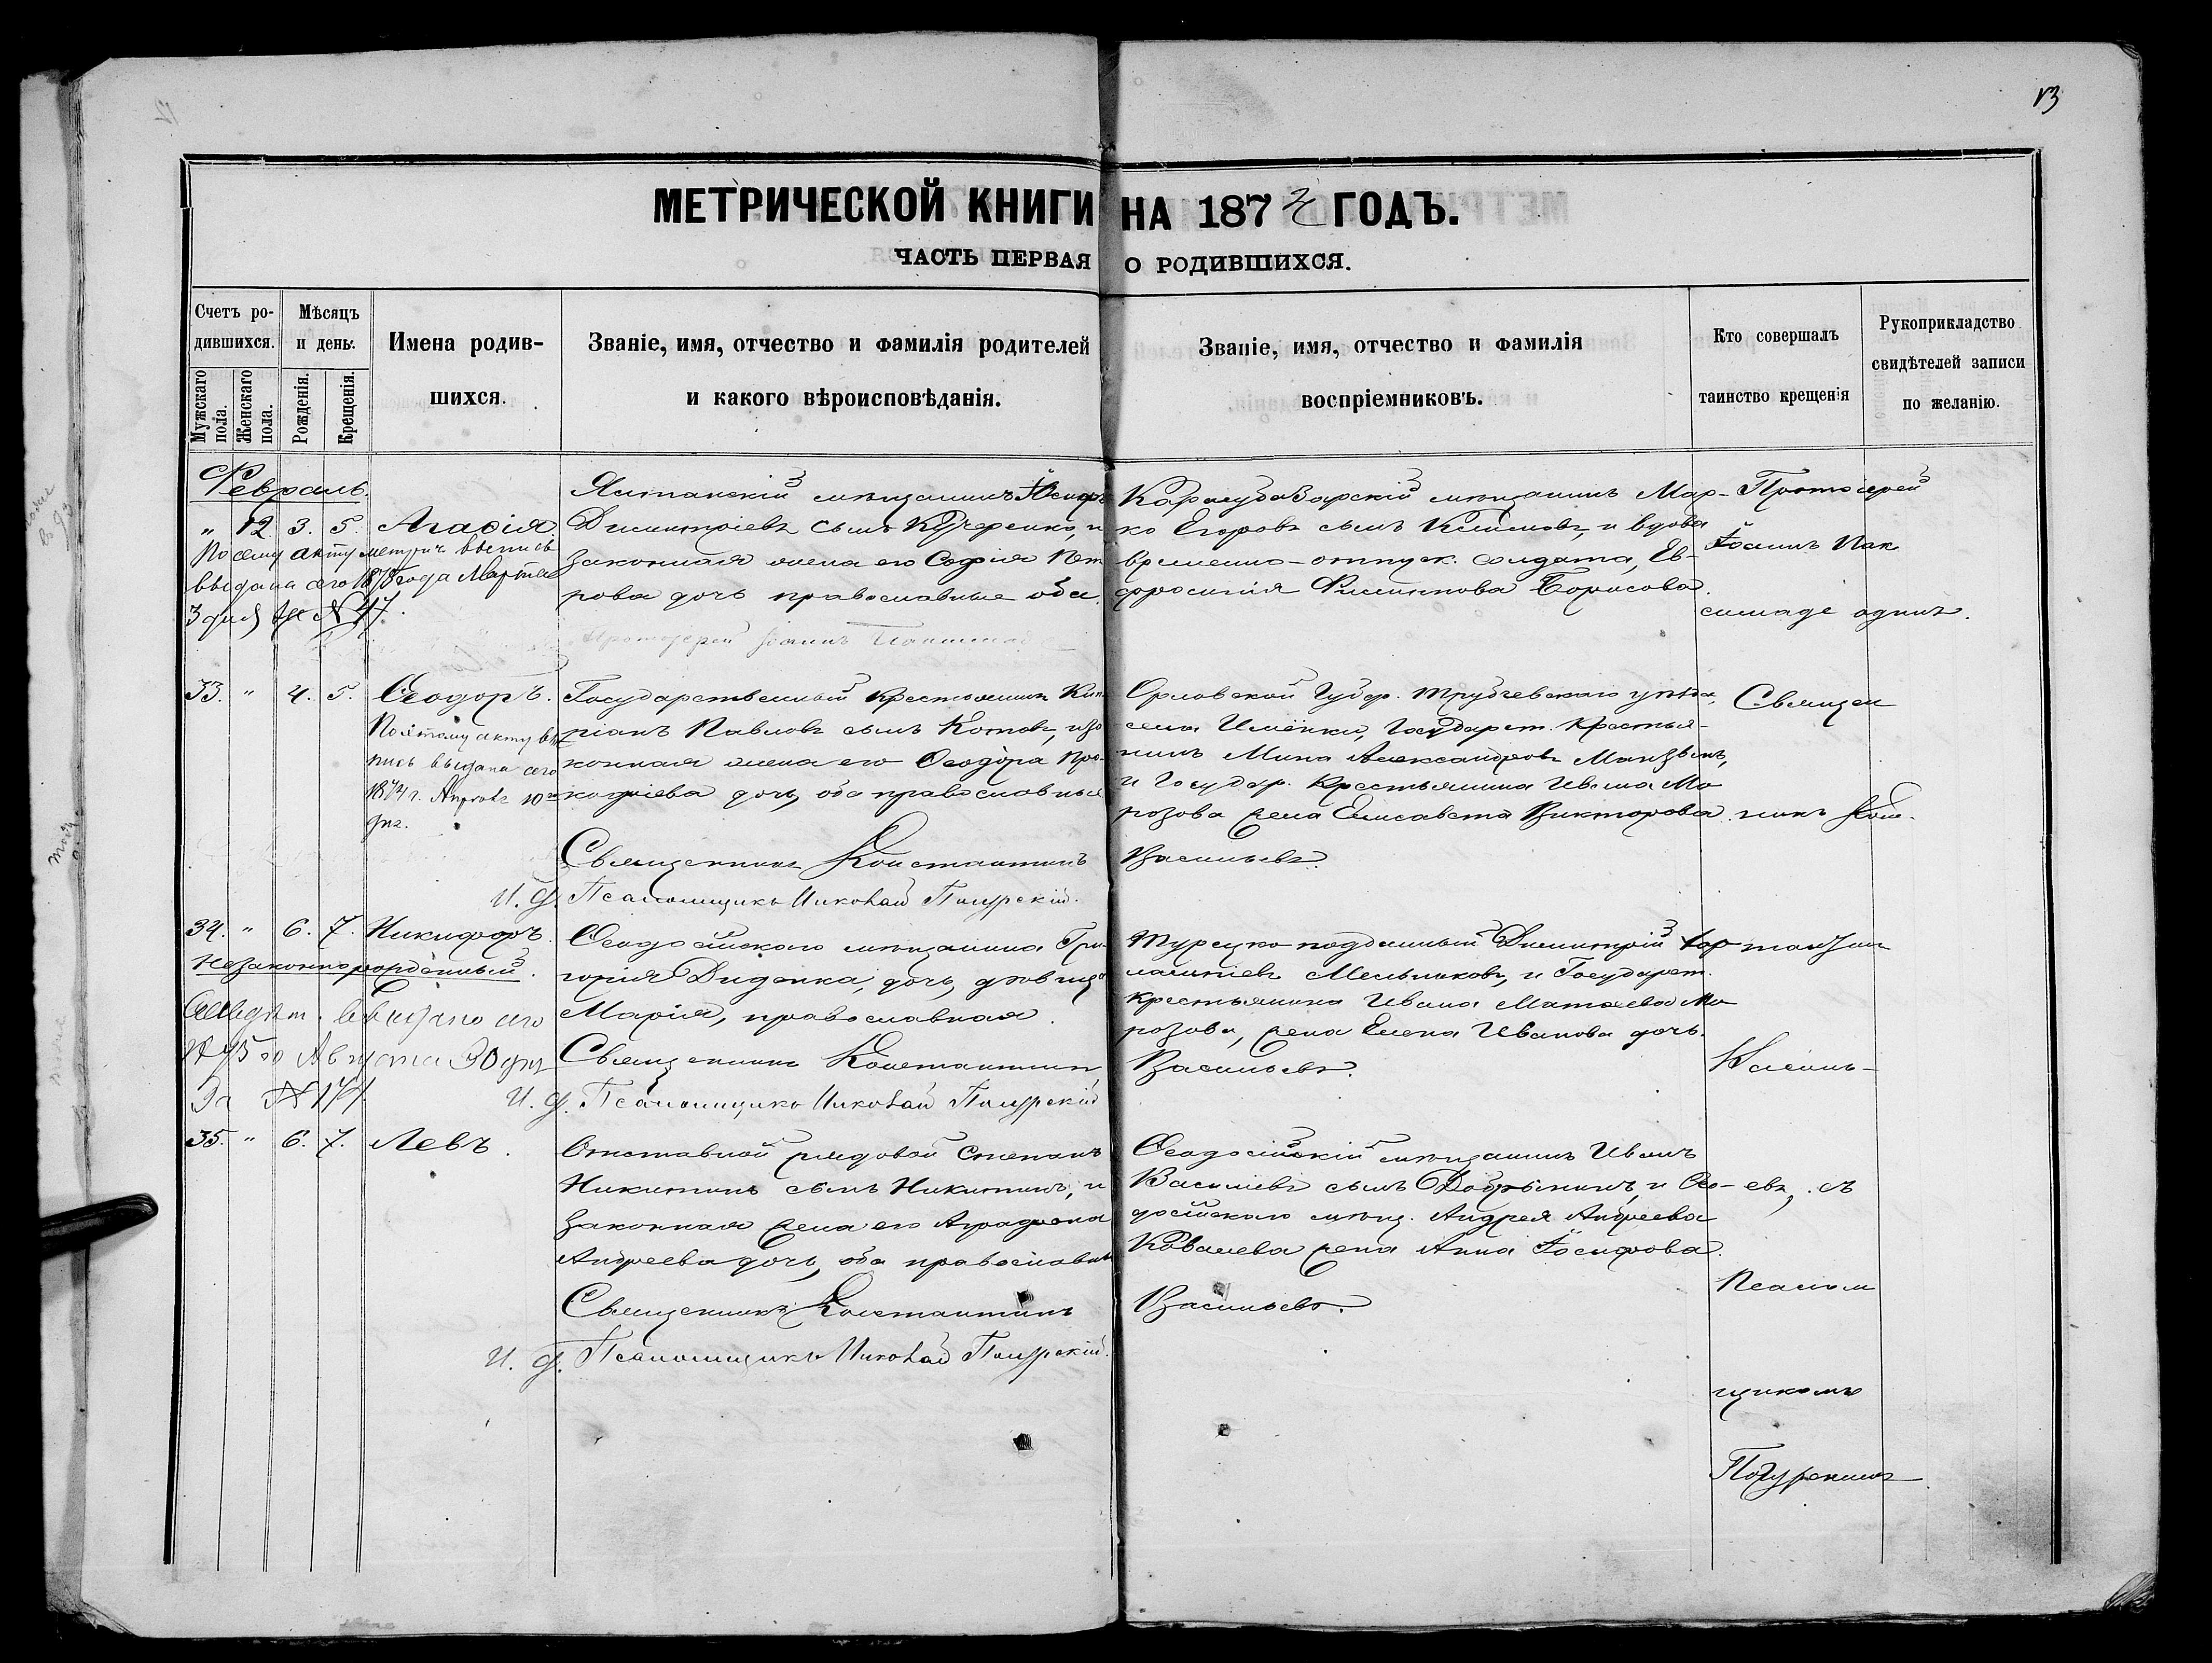 13
МЕТРИЧЕСКОЙ КНИГИ НА 1872 ГОДЪ.
ЧАСТЬ ПЕРВАЯ О РОДИВШИХСЯ.
Счетъ ро-
дившихся.
Мужскаго пола.
Женскаго пола.
Мѣсяцъ
и день.
Рожденія.
Крещенія.
Имена родив-
шихся.
Званіе, имя, отчество и фамилія родителей
и какого вѣроисповѣданія.
Званіе, имя, отчество и фамилія
воспріемниковъ.
Кто совершалъ
таинство крещенія
Рукоприкладство
свидѣтелей записи
по желанію.
Февраль.
" 12. 3. 5. Агаѳія
По сему акту метрич. выпись
выдана сего 1878 года Марта
3 дня за № 47.
Ялтинскій мѣщанинъ Іосифъ
Димитріевъ сынъ Кучеренко, и
законная жена его Софія Пет
рова дочь православные оба.
Протоіерей Іоаннъ
Карасубазарскій мѣщанинъ Мар-
ко Егоровъ сынъ Климовъ, и вдова
временно-отпуск. солдата, Ев-
фросинія Филиппова Борисова.
Протоіерей
Іоаннъ Пак
симаде одинъ.
33. " 4. 5. Ѳеодоръ.
По этому акту вы
пись выдана сего
187 г. Апрѣля 10
дня.
Государственный крестьянинъ Кип
ріанъ Павловъ сынъ Котовъ, и за
конная жена его Ѳеодора Про-
кофіева дочь, оба православные
Священникъ Константинъ
Васильевъ.
И. д. Псаломщика Николай
Орловской Губер. Трубчевскаго уѣзда,
села Государст. Крестья-
нинъ Мина Александровъ
и Государ. Крестьянина Ивана Мо
розова жена Елисавета Викторова
Священ
никъ Кон-
34. " 6. 7. Никифоръ.
Незаконнорожденный.
Свидѣт. выдано сего
1875 го Августа 30 дня
За № 171
Ѳеодосійскаго мѣщанина Гри-
горія Диденка, дочь, дѣвица
Марія, православная.
Священникъ Константинъ
Васильевъ.
И. д. Псаломщика Николай
Турецко-подданный Димитрій Хар-
лампіевъ Мельниковъ, и Государст.
крестьянина Ивана Матвеева Мо
розова, жена Елена Иванова дочь.
стантин
Василь-
35. " 6. 7. Левъ.
Отставной рядовой Степанъ
Никитинъ сынъ Никитинъ, и
законная жена его Аграфена
Андреева дочь, оба православны
Священникъ Константинъ
Васильевъ.
И. д. Псаломщика Николай
Ѳеодосійскій мѣщанинъ Иванъ
Васильевъ сынъ Добрынинъ, и Ѳео-
досійскаго мѣщ. Андрея Андреева
Ковалева жена Анна Іосифова.
евъ, съ
Псалом
щикомъ